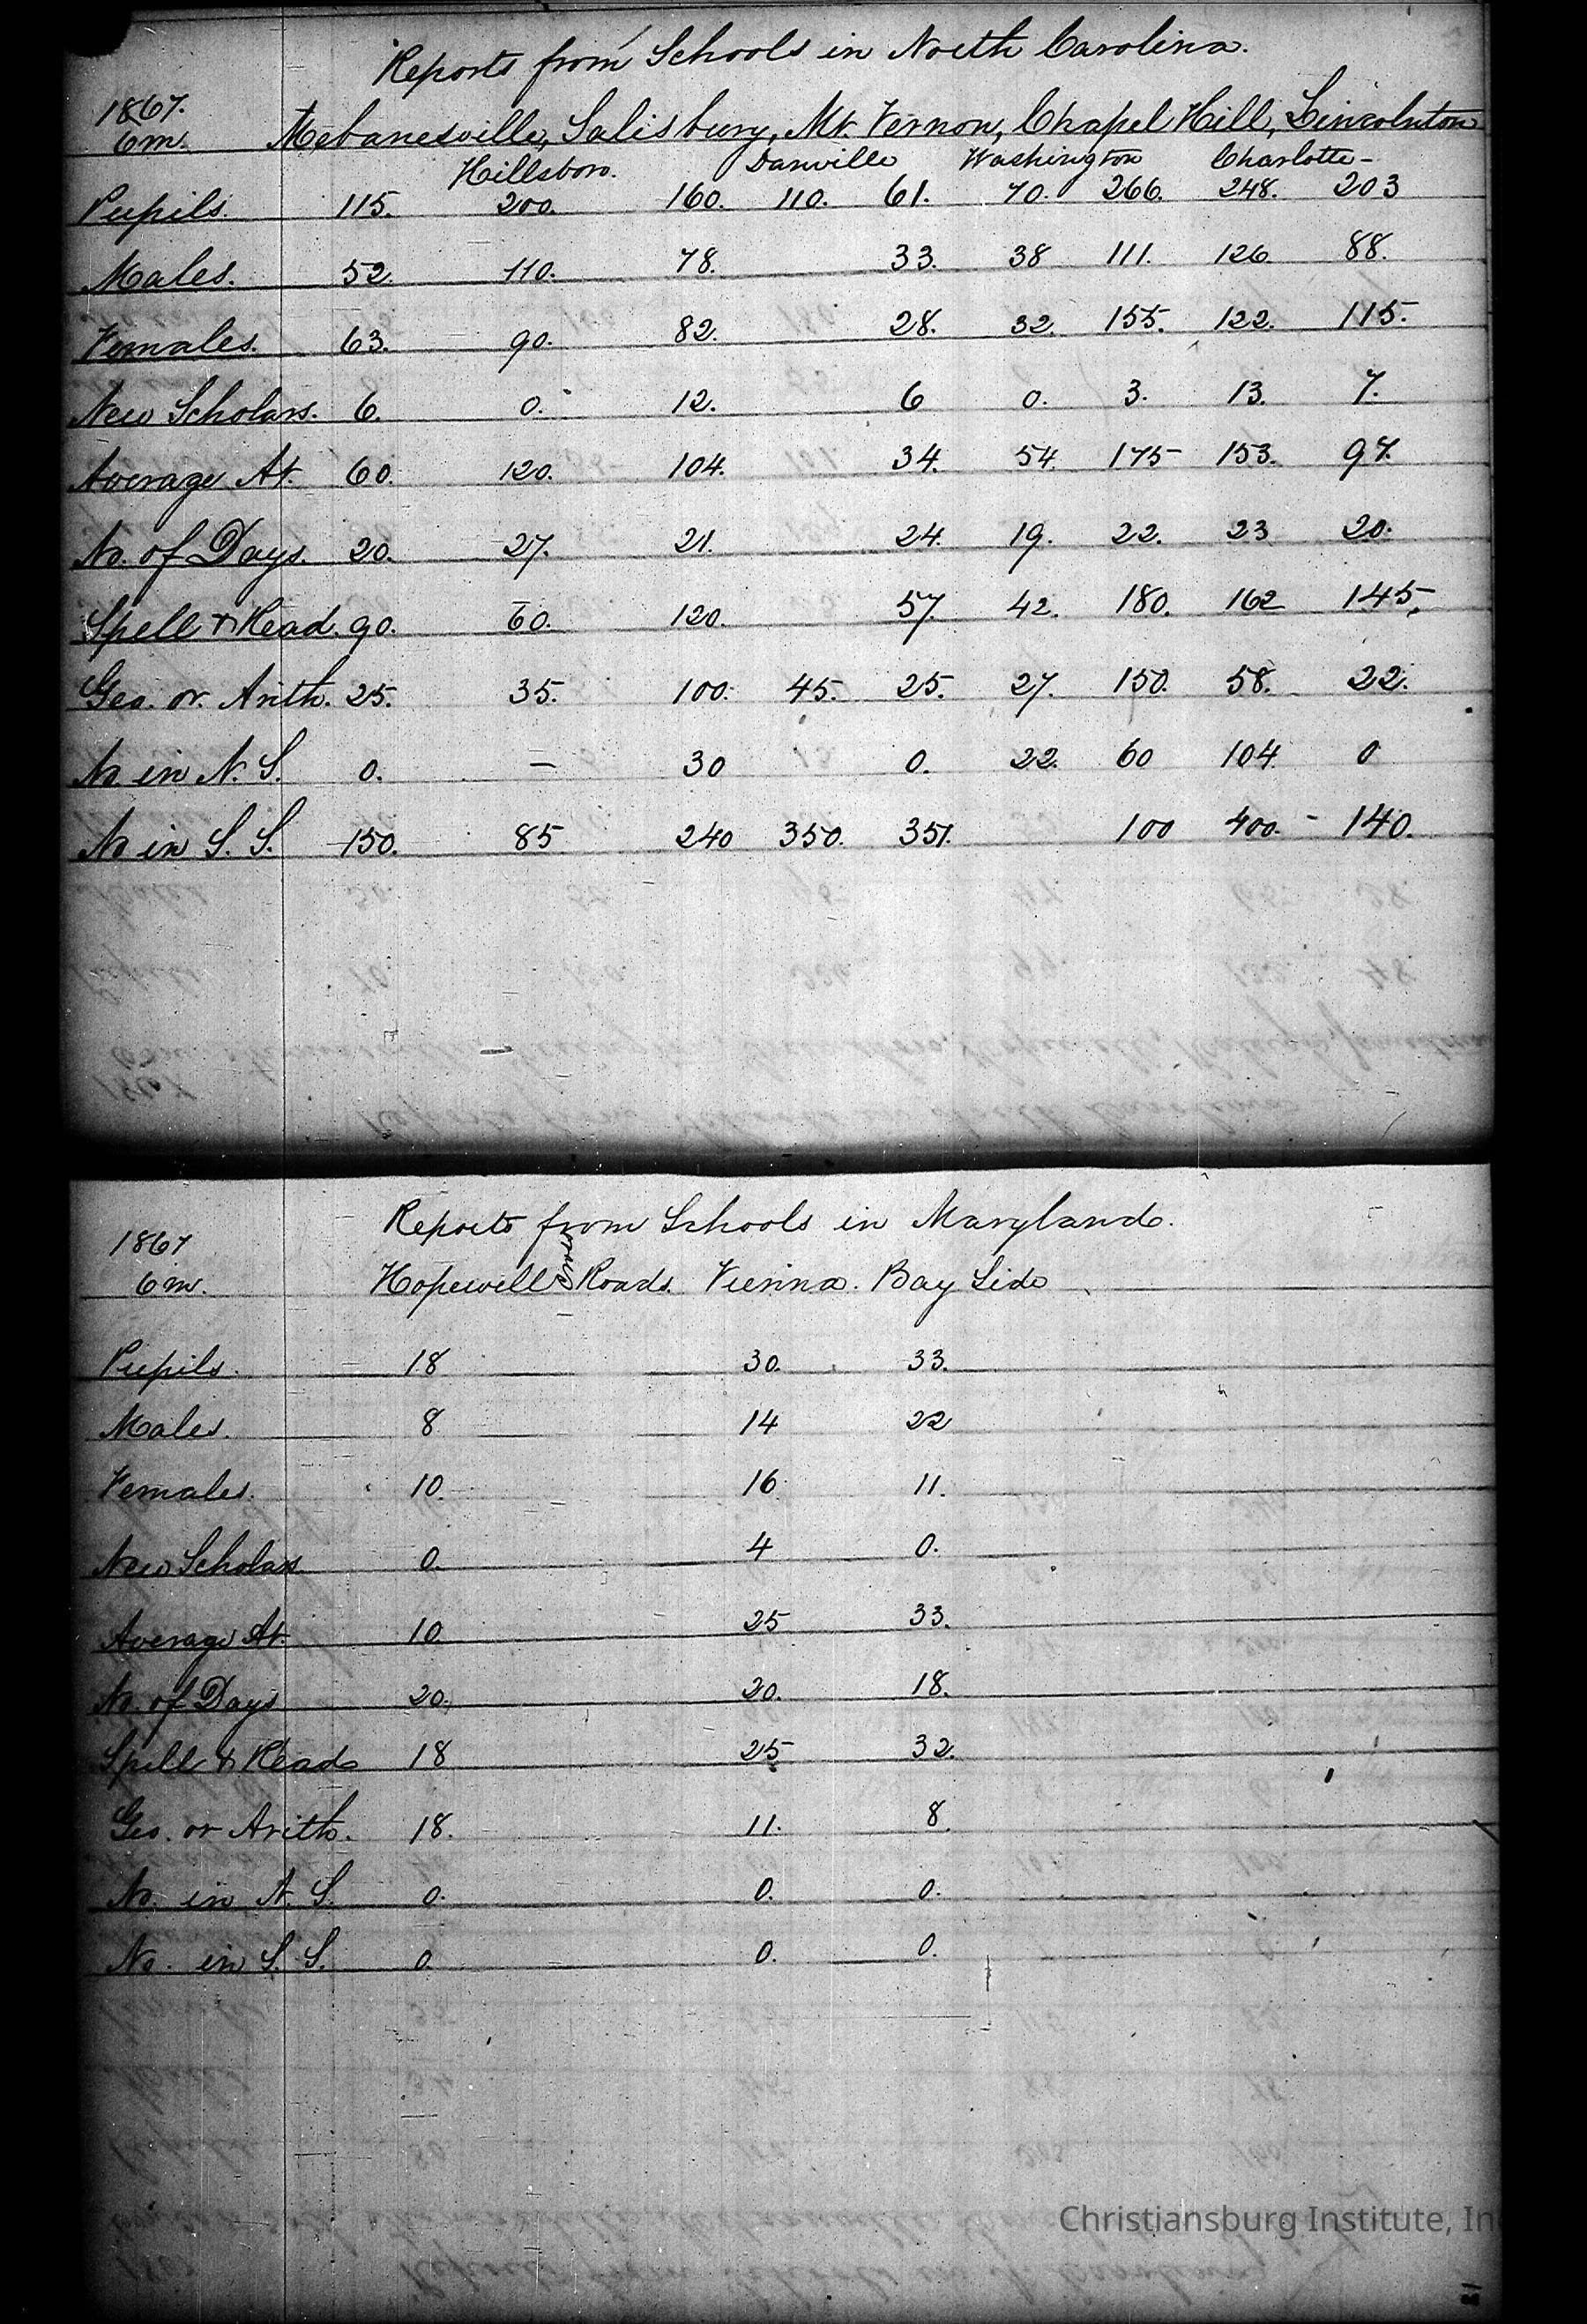 Reports from Schools in North Carolina.
1867.
6m. Mebanesville, Salisbury, Mt. Vernon, Chapel Hill, Lincolnton
Hillsboro. Danville Washington Charlotte-
Pupils. 115. 200. 160. 110. 61. 70. 266. 248. 203
Males. 52. 110. 78. 33. 38 111. 126. 88.
Females. 63. 90. 82. 28. 32. 155. 122. 115.
New Scholars. 6. 0. 12. 6 0. 3. 13. 7.
Average At. 60. 120. 104. 34. 54. 175 153. 97.
No. of Days. 20. 27. 21. 24. 19. 22. 23 20.
Spell & Read. 90. 60. 120. 57. 42. 180. 162 145.
Geo. or Arith. 25. 35. 100. 45. 25. 27. 150. 58. 22.
No. in N. S. 0. — 30 0. 22. 60 104 0
No in S. S. 150. 85 240 350. 351. 100 400. - 140.
Reports from Schools in Maryland.
1867
6m. Hopewell Cross Roads. Vienna. Bay Side
Pupils. 18 30. 33.
Males. 8 14 22
Females. 10. 16. 11.
New Scholars 0. 4 0.
Average At. 10. 25 33.
No. of Days 20. 20. 18.
Spell & Read 18 25 32.
Geo. or Arith. 18. 11. 8.
No. in N. S. 0. 0. 0.
No. in S. S. 0 0. 0.
Christiansburg Institute, In